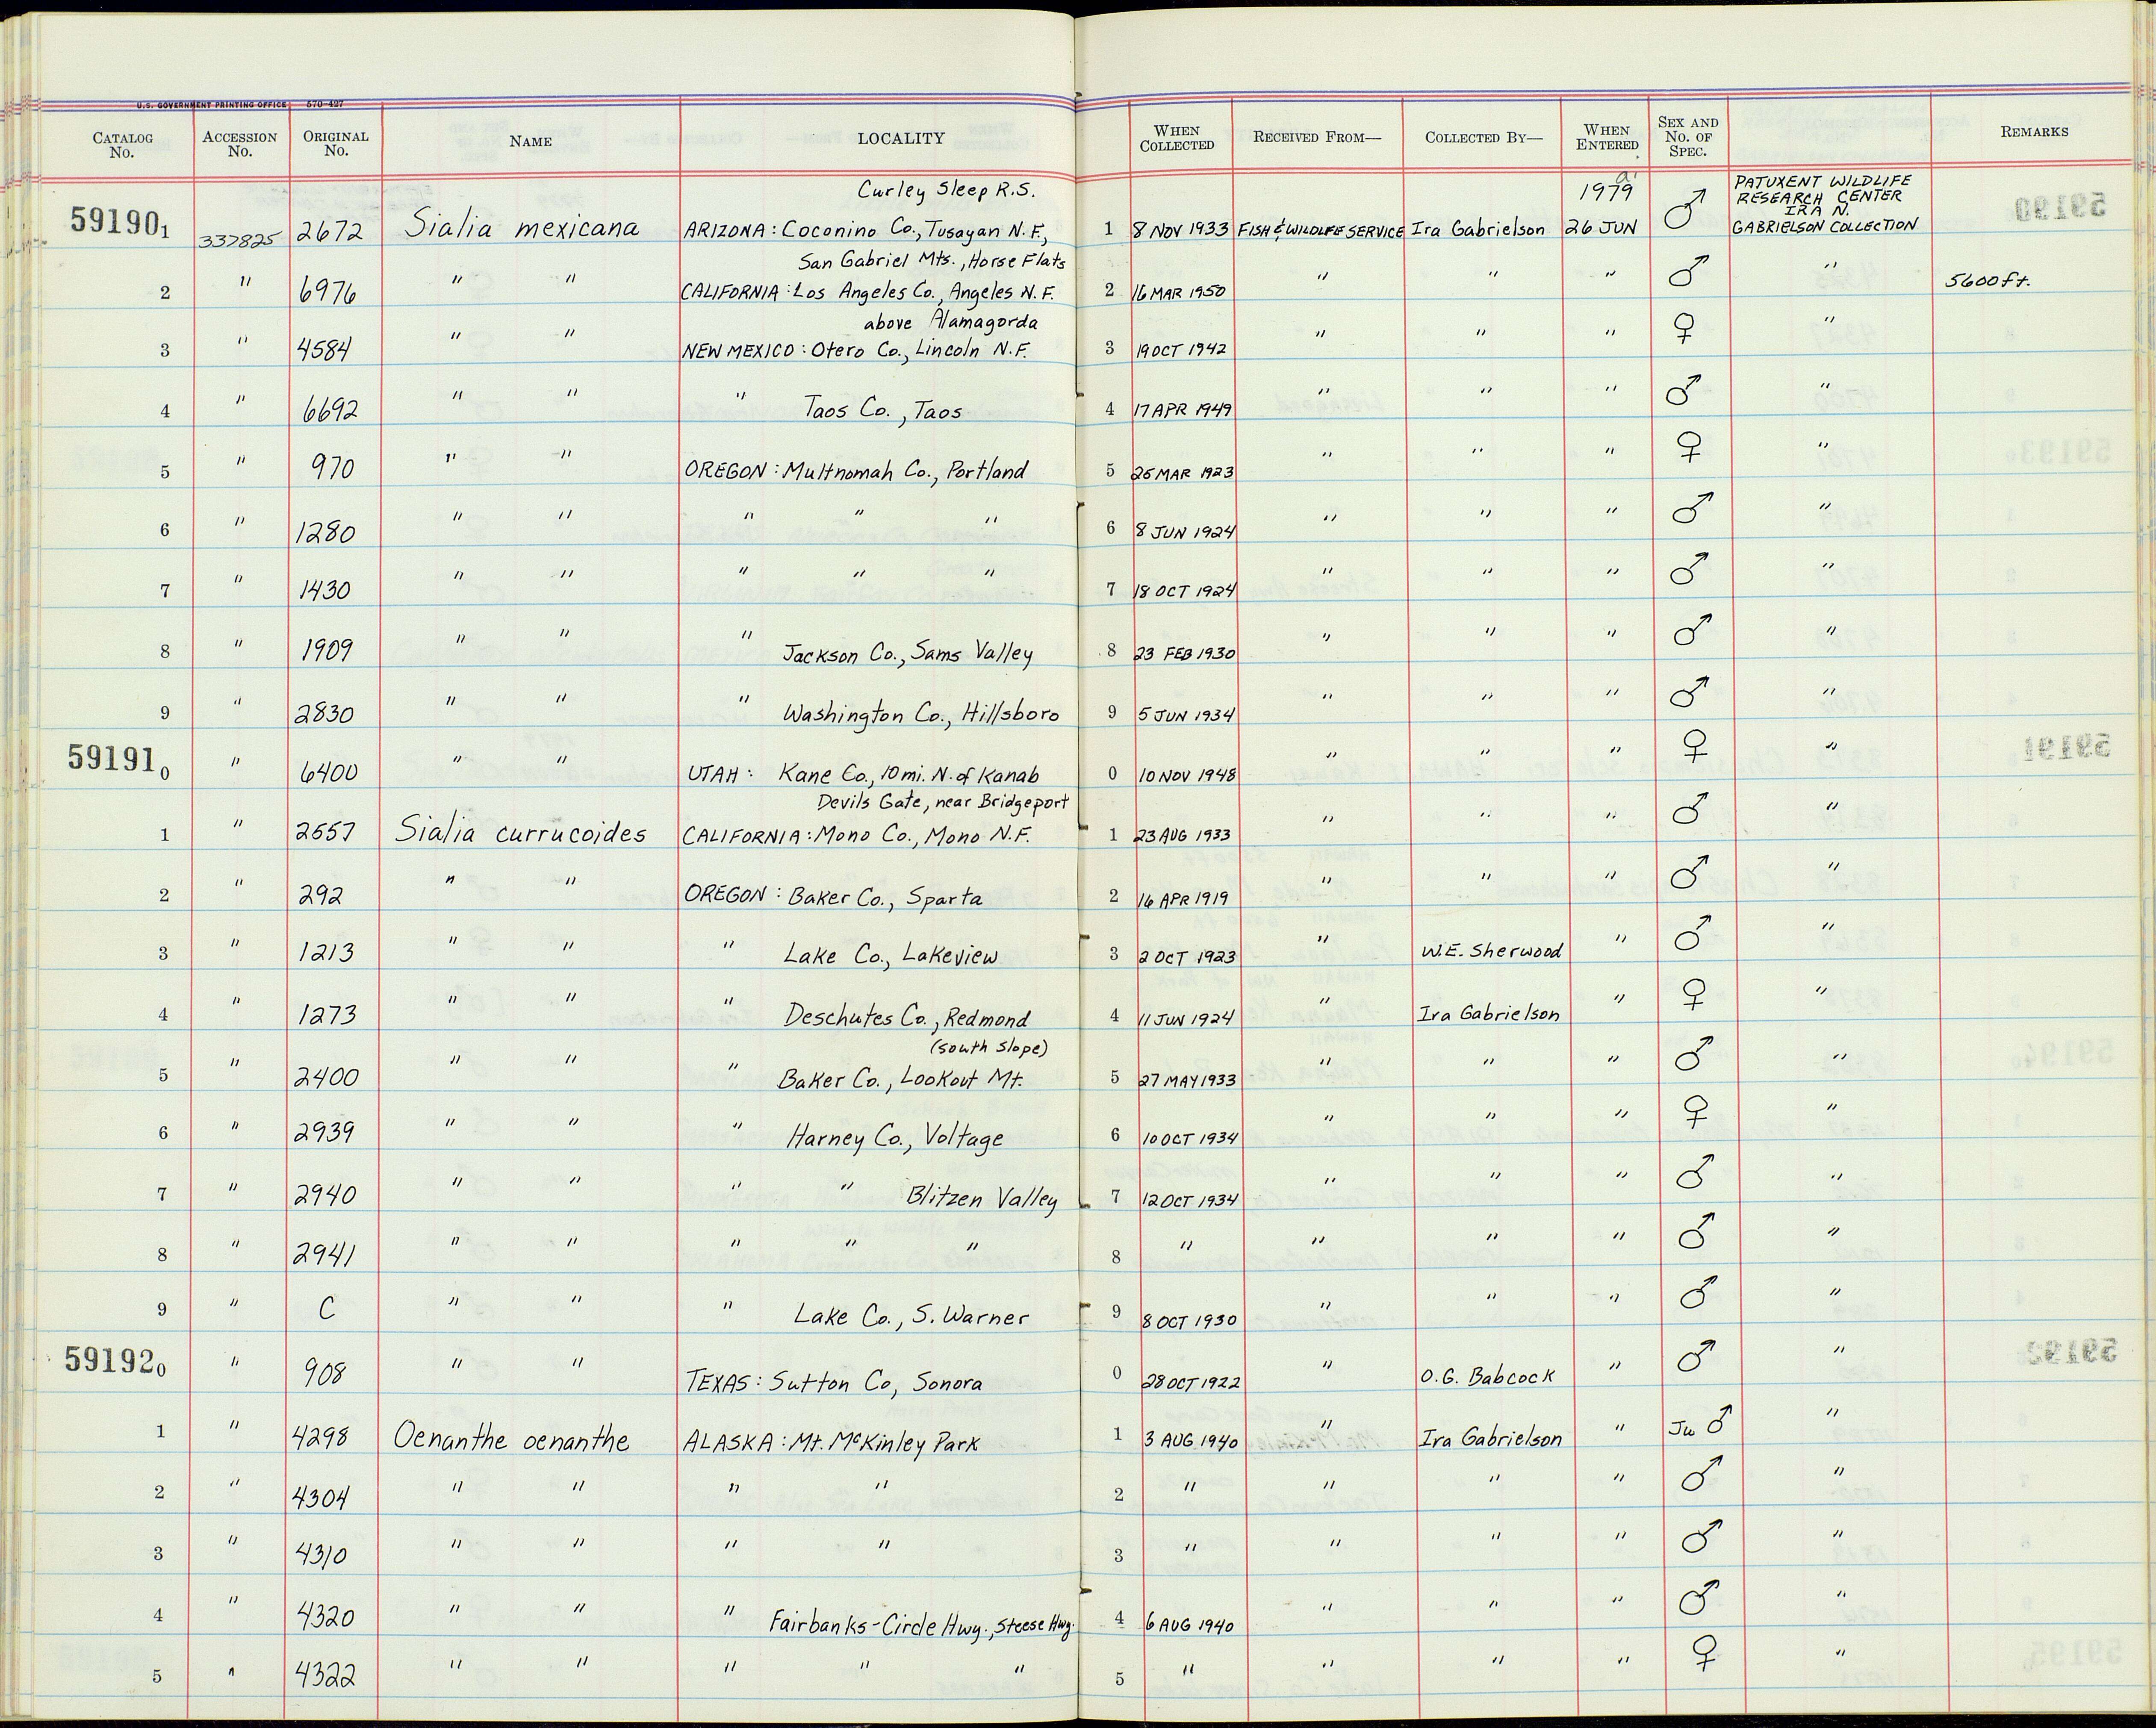 U.S. GOVERNMENT PRINTING OFFICE 570-427
CATALOG No. ACCESSION No. ORIGINAL No. NAME LOCALITY WHEN COLLECTED RECEIVED FROM— COLLECTED BY— WHEN ENTERED SEX AND No. OF SPEC. REMARKS
Curley Sleep R.S. 1979 PATUXENT WILDLIFE RESEARCH CENTER IRA N.
59190 1 337825 2672 Sialia mexicana ARIZONA: Coconino Co., Tusayan N.F., 1 8 NOV 1933 FISH & WILDLIFE SERVICE Ira Gabrielson 26 JUN ♂ GABRIELSON COLLECTION
San Gabriel Mts., Horse Flats
2 " 6976 " " CALIFORNIA: Los Angeles Co., Angeles N.F. 2 16 MAR 1950 " " " ♂ " 5600 ft.
above Alamagorda
3 " 4584 " " NEW MEXICO: Otero Co., Lincoln N.F. 3 19 OCT 1942 " " " ♀ "
4 " 6692 " " " Taos Co., Taos 4 17 APR 1949 " " " ♂ "
5 " 970 " " OREGON: Multnomah Co., Portland 5 25 MAR 1923 " " " ♀ "
6 " 1280 " " " " " 6 8 JUN 1924 " " " ♂ "
7 " 1430 " " " " " 7 18 OCT 1924 " " " ♂ "
8 " 1909 " " " Jackson Co., Sams Valley 8 23 FEB 1930 " " " ♂ "
9 " 2830 " " " Washington Co., Hillsboro 9 5 JUN 1934 " " " ♂ "
59191 0 " 6400 " " UTAH: Kane Co., 10 mi. N. of Kanab 0 10 NOV 1948 " " " ♀ "
Devils Gate, near Bridgeport
1 " 2557 Sialia currucoides CALIFORNIA: Mono Co., Mono N.F. 1 23 AUG 1933 " " " ♂ "
2 " 292 " " OREGON: Baker Co., Sparta 2 16 APR 1919 " " " ♂ "
3 " 1213 " " " Lake Co., Lakeview 3 2 OCT 1923 " W.E. Sherwood " ♂ "
4 " 1273 " " " Deschutes Co., Redmond 4 11 JUN 1924 " Ira Gabrielson " ♀ "
(south slope)
5 " 2400 " " " Baker Co., Lookout Mt. 5 27 MAY 1933 " " " ♂ "
6 " 2939 " " " Harney Co., Voltage 6 10 OCT 1934 " " " ♀ "
7 " 2940 " " " " Blitzen Valley 7 12 OCT 1934 " " " ♂ "
8 " 2941 " " " " " 8 " " " " ♂ "
9 " C " " " Lake Co., S. Warner 9 8 OCT 1930 " " " ♂ "
59192 0 " 908 " " TEXAS: Sutton Co, Sonora 0 28 OCT 1922 " O.G. Babcock " ♂ "
1 " 4298 Oenanthe oenanthe ALASKA: Mt. McKinley Park 1 3 AUG 1940 " Ira Gabrielson " Juv ♂ "
2 " 4304 " " " " 2 " " " " ♂ "
3 " 4310 " " " " 3 " " " " ♂ "
4 " 4320 " " " Fairbanks-Circle Hwy., Steese Hwy. 4 6 AUG 1940 " " " ♂ "
5 " 4322 " " " " " 5 " " " " ♀ "